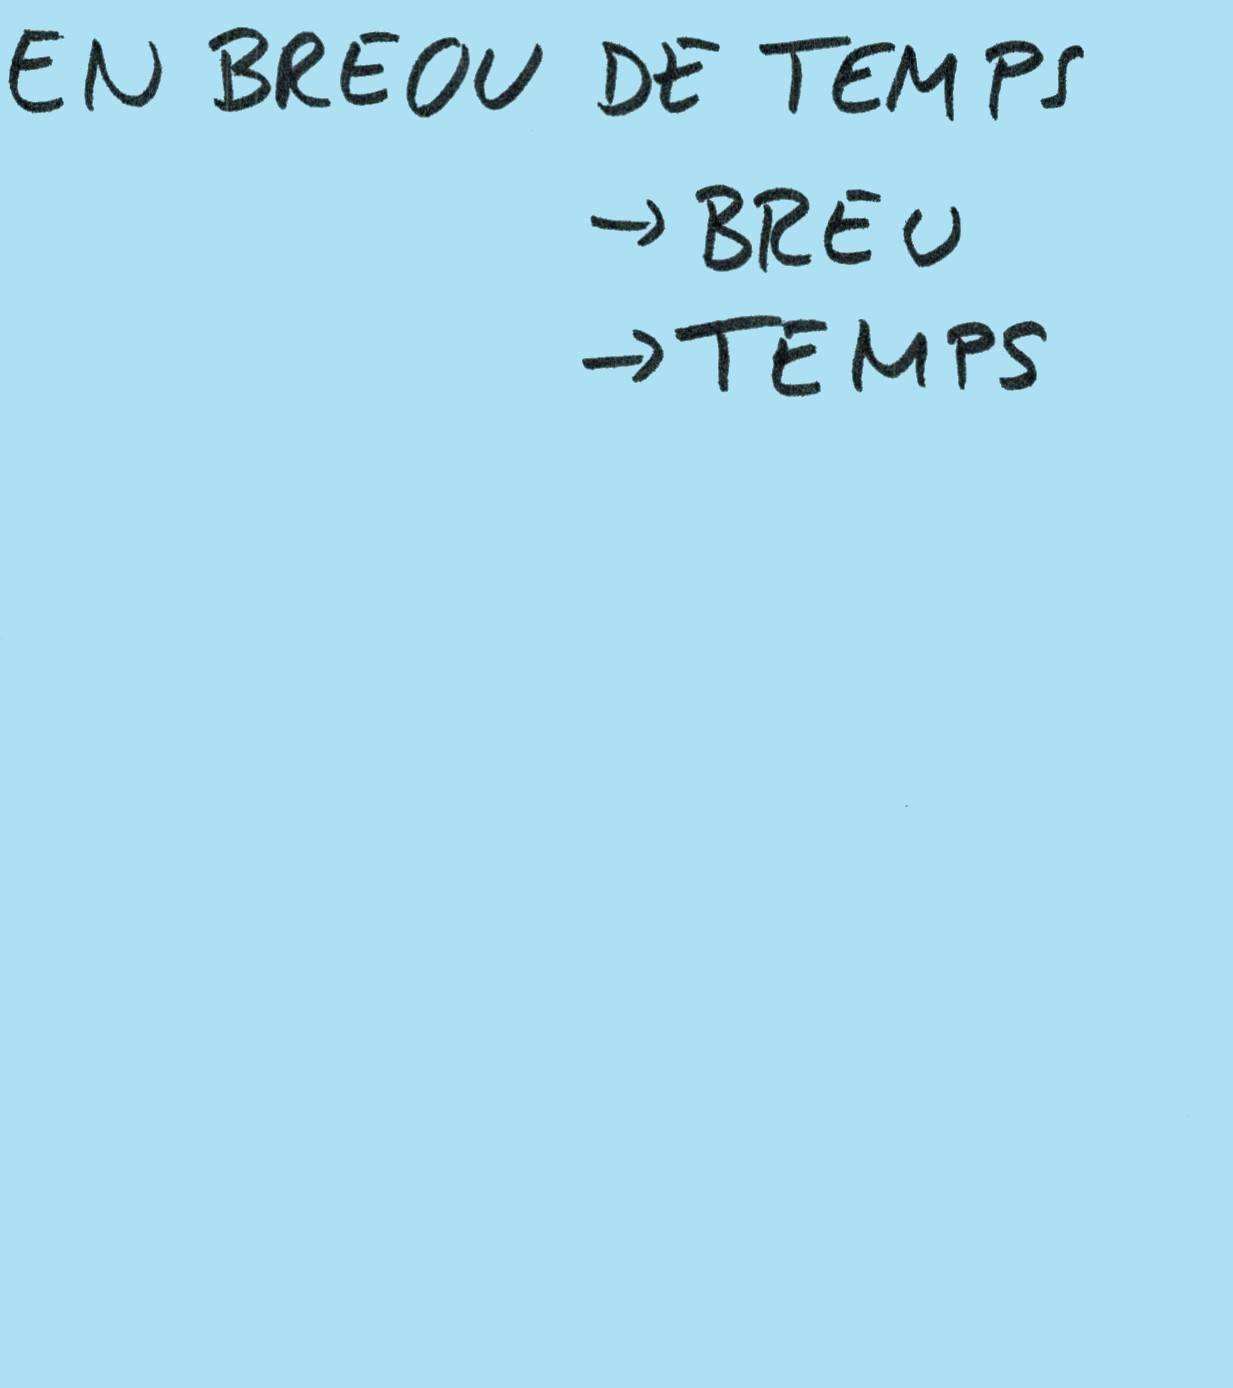 EN BREOU DE TEMPS
→ BREU
→ TEMPS